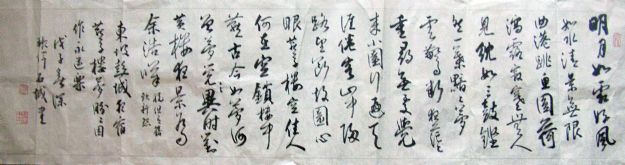 明月如霜好風
如水清景無限
曲港跳魚圓荷
瀉露寂寞無人
見紞如三鼓鏗
然一葉黯黯夢
雲驚斷夜茫茫
重尋無處覺
來小園行遍天
涯倦客山中歸
路望斷故園心
眼燕子樓空佳人
何在空鎖樓中
燕古今如夢何
曾夢覺異時對
黃樓夜景為
余浩嘆
東坡彭城夜宿
燕子樓夢盼盼因
作永遇樂
戊子春深
石城